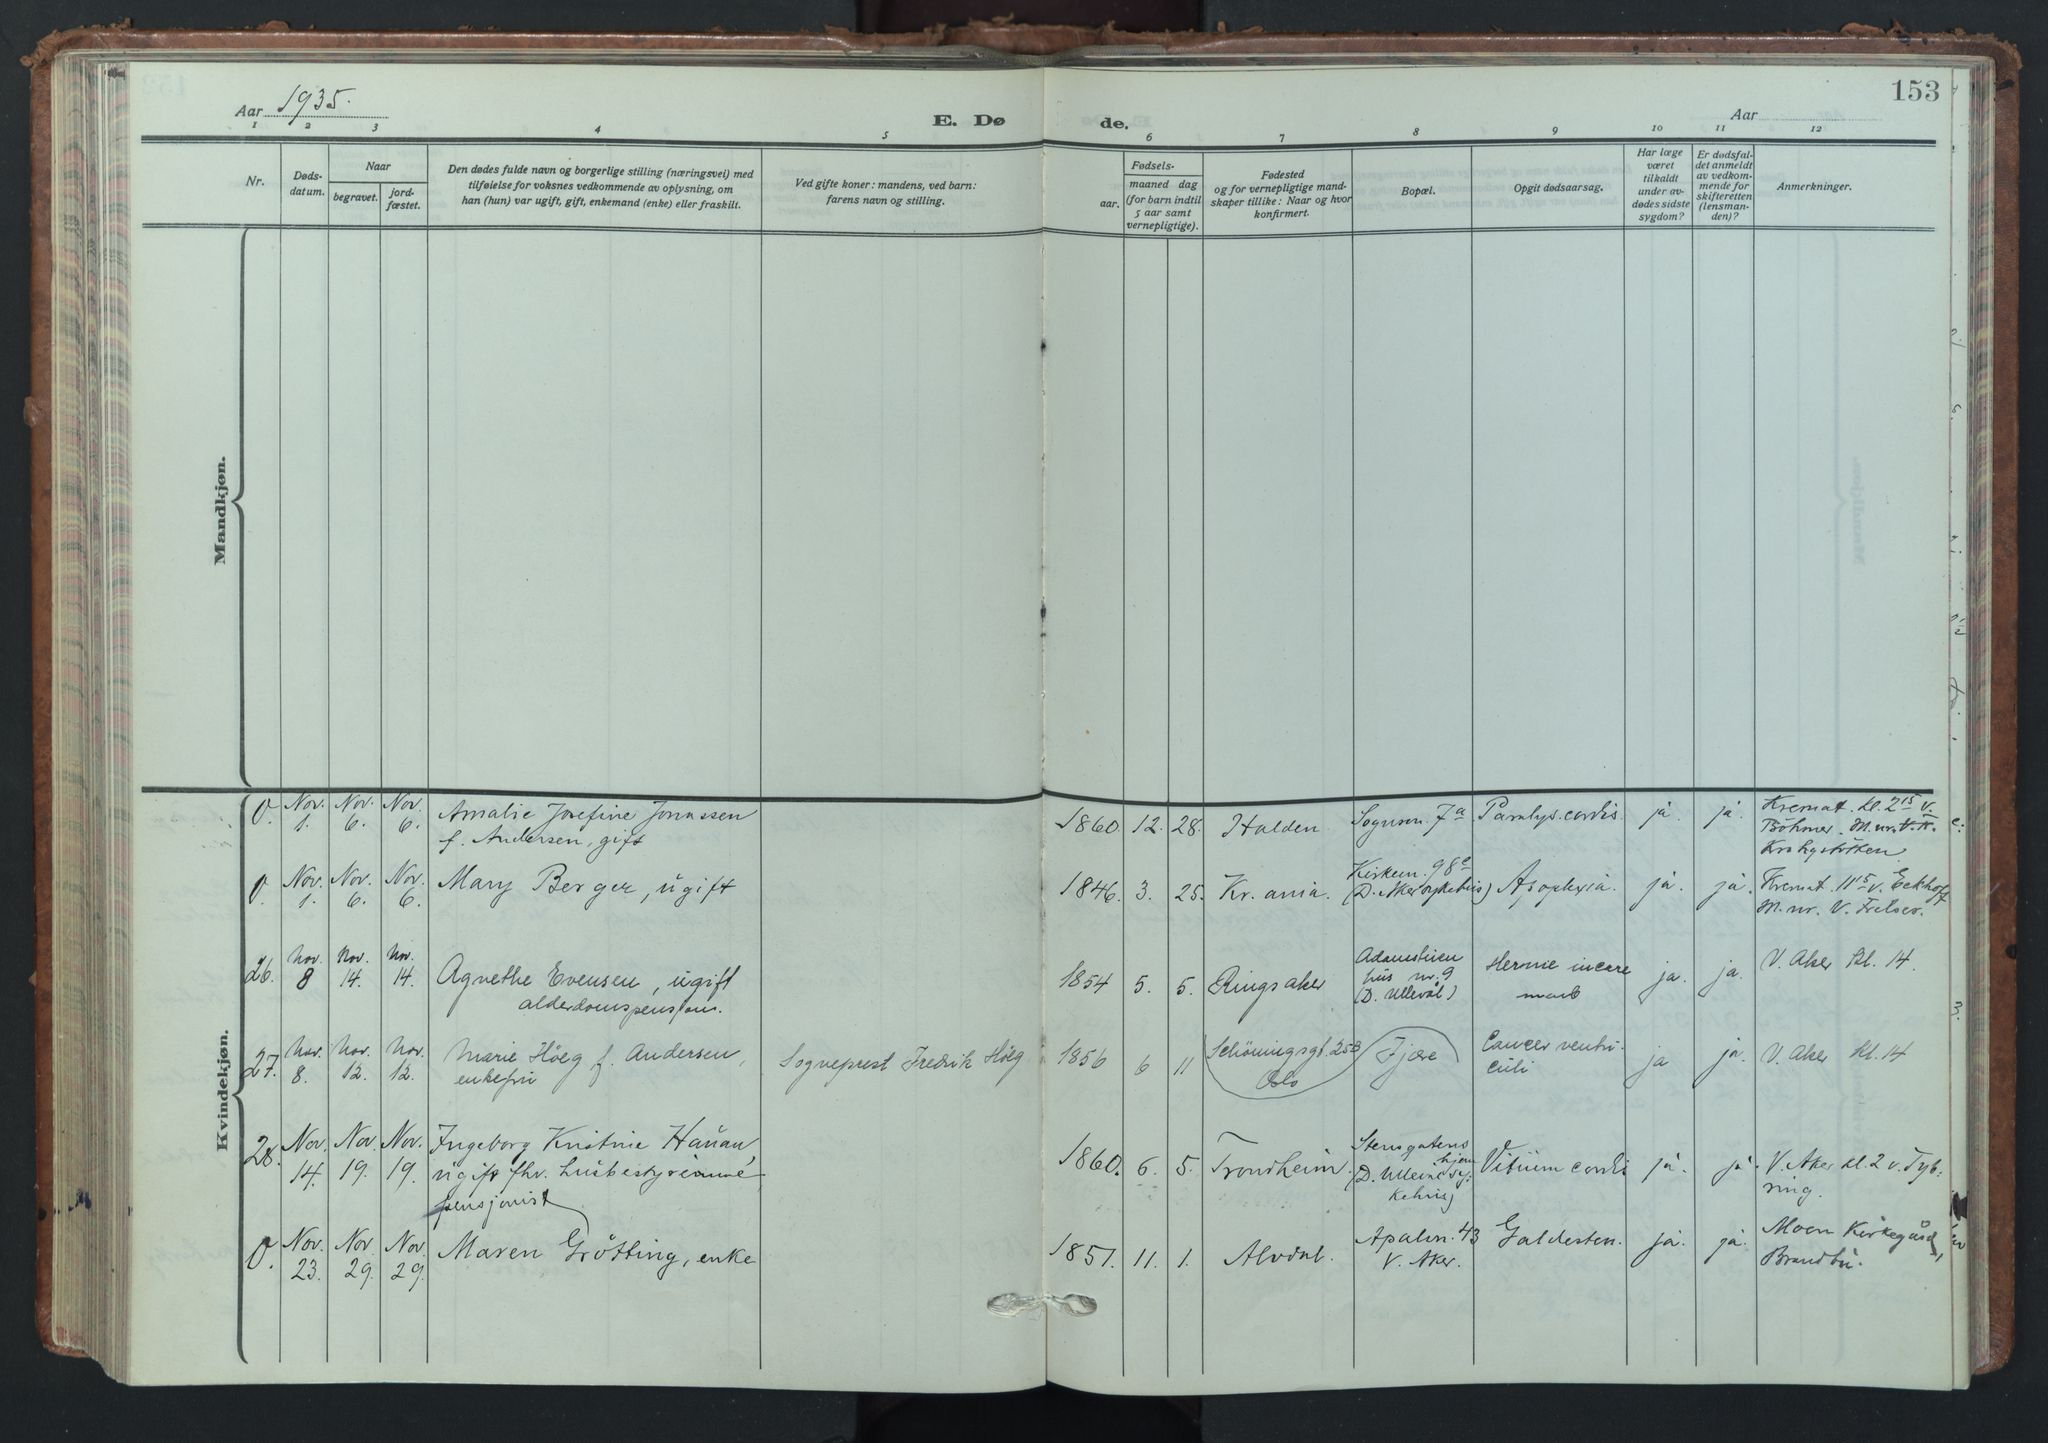 153
Aar 1935.
E. Døde.
Aar
1 2 3 4 5 6 7 8 9 10 11 12
Nr.
Døds-
datum.
Naar
begravet.
jord-
fæstet.
Den dødes fulde navn og borgerlige stilling (næringsvei) med
tilføielse for voksnes vedkommende av oplysning, om
han (hun) var ugift, gift, enkemand (enke) eller fraskilt.
Ved gifte koner: mandens, ved barn:
farens navn og stilling.
Fødsels-
aar.
maaned dag
(for barn indtil
5 aar samt
vernepligtige).
Fødested
og for vernepligtige mand-
skaper tillike: Naar og hvor
konfirmert.
Bopæl.
Opgit dødsaarsag.
Har læge
været
tilkaldt
under av-
dødes sidste
sygdom?
Er dødsfal-
det anmeldt
av vedkom-
mende for
skifteretten
(lensman-
den)?
Anmerkninger.
Mandkjøn.
Kvindekjøn.
0. Nov. 1. Nov. 6. Nov. 6. Amalie Josefine Jonassen
f. Andersen, gift
1860. 12. 28. Halden. Sognsv. 7a Paralys. cordis. ja. ja. Kremat. kl. 2 15 v.
Böhmer. M. nr. V. A.
0. Nov. 1. Nov. 6. Nov. 6. Mary Berger, ugift
1846. 3. 25. Kr.ania. Kirkevn. 98c
(D. Aker sykehus) Apoplexia. ja. ja. Kremat. 11 15 v. Eckhoff
M. nr. V. Frelser.
26. Nov. 8 Nov. 14. Nov. 14. Agnethe Evensen, ugift
alderdomspensjon.
1854 5. 5. Ringsaker Adamstuen
hus nr. 9
(D. Ullevål) Hernie incare ja. ja. V. Aker Kl. 14.
27. Nov. 8. Nov. 12. Nov. 12. Marie Höeg f. Andersen,
enkefru
Sogneprest Fredrik Höeg
1856 6 11 Schöningsgt. 25B
Oslo
Fjære Cancer ventri-
culi ja ja. V. Aker Kl. 14
28. Nov. 14. Nov. 19. Nov. 19. Ingeborg Kristine Hauan,
ugift fhv. husbestyrerinne
pensjonist
1860. 6. 5. Trondheim. Stensgatens
hjem
(D. Ullevål Sy-
kehus) Vitium cordis ja. ja. V. Aker kl. 2 v. Tyb-
ring.
0. Nov. 23. Nov. 29. Nov. 29. Maren Grötting, enke
1851. 11. 1. Alvdal. Apalv. 43
V. Aker. Galdesten. ja. ja. Moen Kirkegård,
Brandbu.